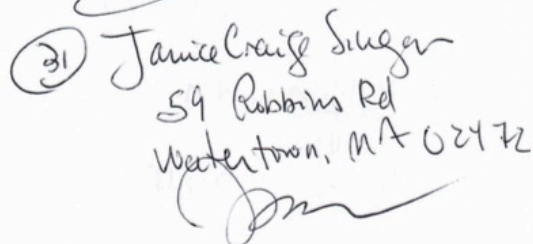 31 Janice Craige Singer
59 Robbins Rd
Watertown, MA 02472